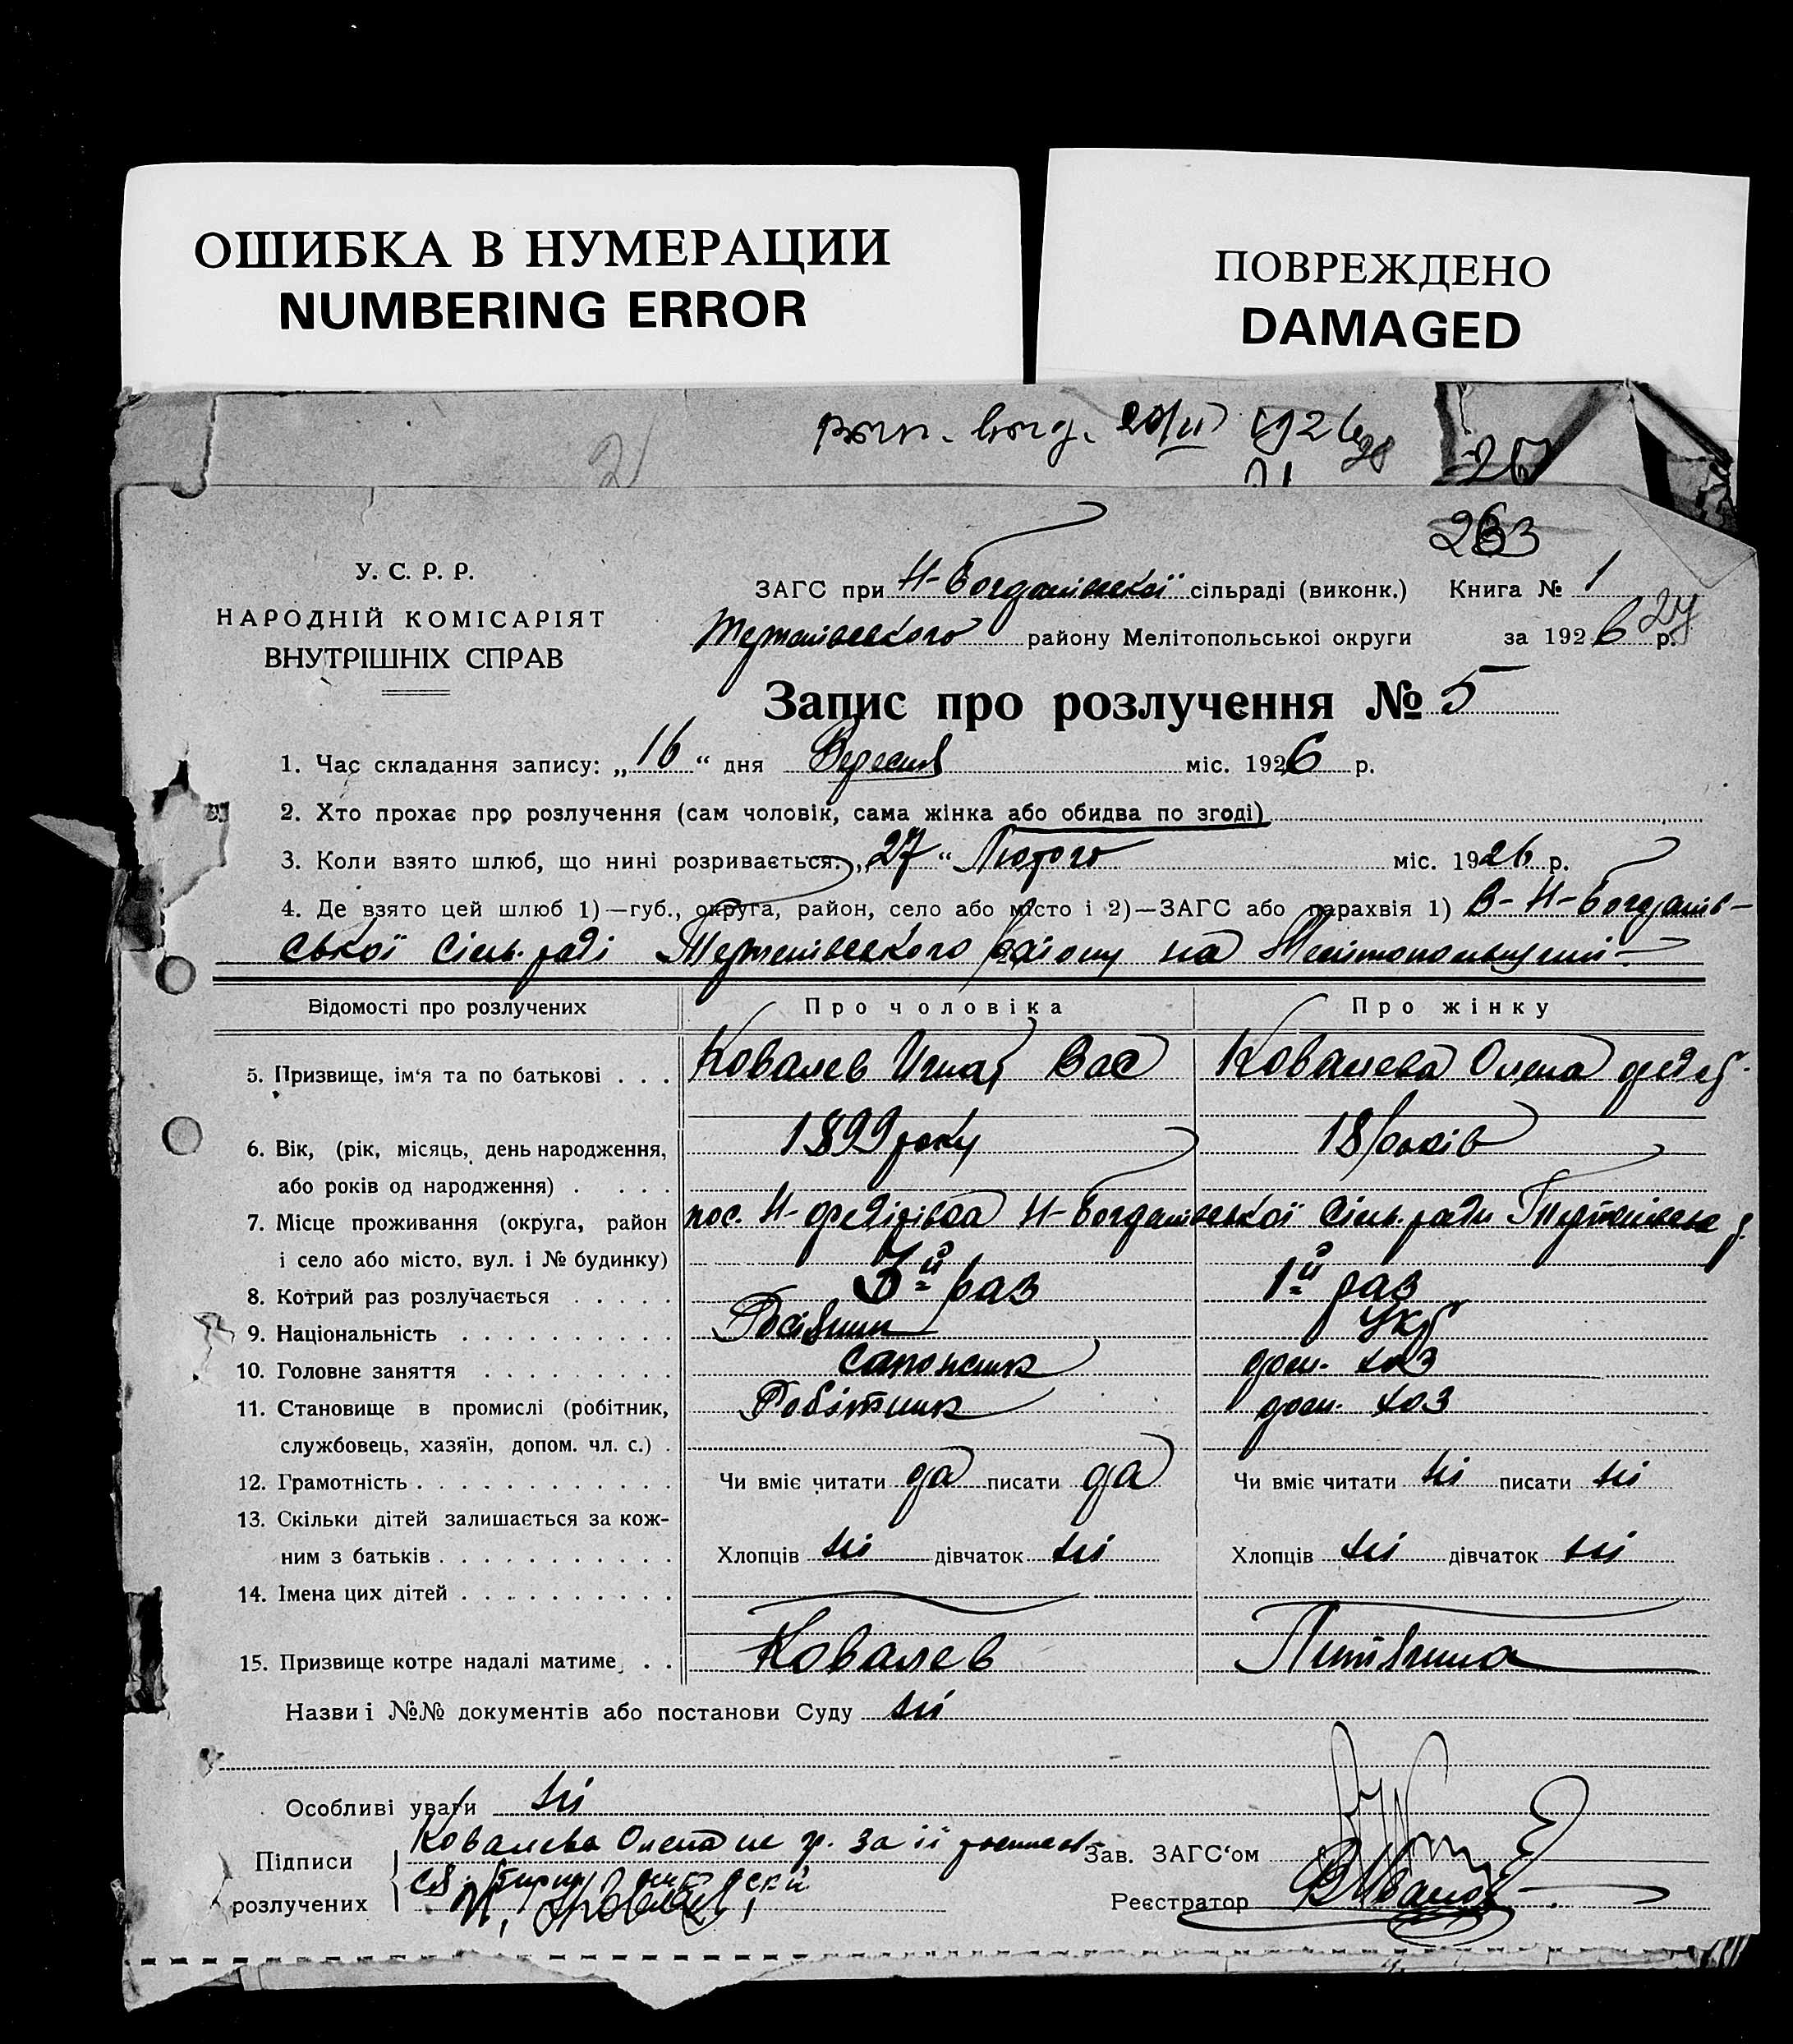 ОШИБКА В НУМЕРАЦИИ
NUMBERING ERROR
ПОВРЕЖДЕНО
DAMAGED
1926
28
26
2
263
У. С. Р. Р.
НАРОДНІЙ КОМІСАРІЯТ
ВНУТРІШНІХ СПРАВ
ЗАГС при Н-Богданівській сільраді (виконк.) Книга № 1
27
Терпенівського району Мелітопольської округи за 1926 р.
Запис про розлучення № 5
1. Час складання запису: „16“ дня Вересня міс. 1926 р.
2. Хто прохає про розлучення (сам чоловік, сама жінка або обидва по згоді)
3. Коли взято шлюб, що нині розривається: „27“ Лютого міс. 1926 р.
4. Де взято цей шлюб 1)—губ., округа, район, село або місто і 2)—ЗАГС або парахвія 1) В- Н-Богданів-
ської сіль. раді Терпенівського району на Мелітопольщині
Відомості про розлучених Про чоловіка Про жінку
5. Призвище, ім‘я та по батькові . . . Ковалев Игнат Вас Ковалева Олена Федор
6. Вік, (рік, місяць, день народження, 1899 року 18 років
або років од народження) . . . .
7. Місце проживання (округа, район пос. Н-Федорівка Н-Богданівської сіль. ради Терпенівськ р.
і село або місто, вул. і № будинку)
8. Котрий раз розлучається . . . . . 3й раз 1й раз
9. Національність . . . . . . . . . . Росіянин Укр
10. Головне заняття . . . . . . . . . сапожник дом. хоз
11. Становище в промислі (робітник, Робітник дом. хоз
службовець, хазяїн, допом. чл. с.) .
12. Грамотність . . . . . . . . . . . . Чи вміє читати да писати да Чи вміє читати ні писати ні
13. Скільки дітей залишається за кож-
ним з батьків . . . . . . . . . . . Хлопців ні дівчаток ні Хлопців ні дівчаток ні
14. Імена цих дітей . . . . . . . . . .
15. Призвище котре надалі матиме . . Ковалев Литвинна
Назви і №№ документів або постанови Суду ні
Особливі уваги ні
Ковалева Олена не гр. за її
Підписи Зав. ЗАГС‘ом
розлучених И, Ковалев, Реєстратор